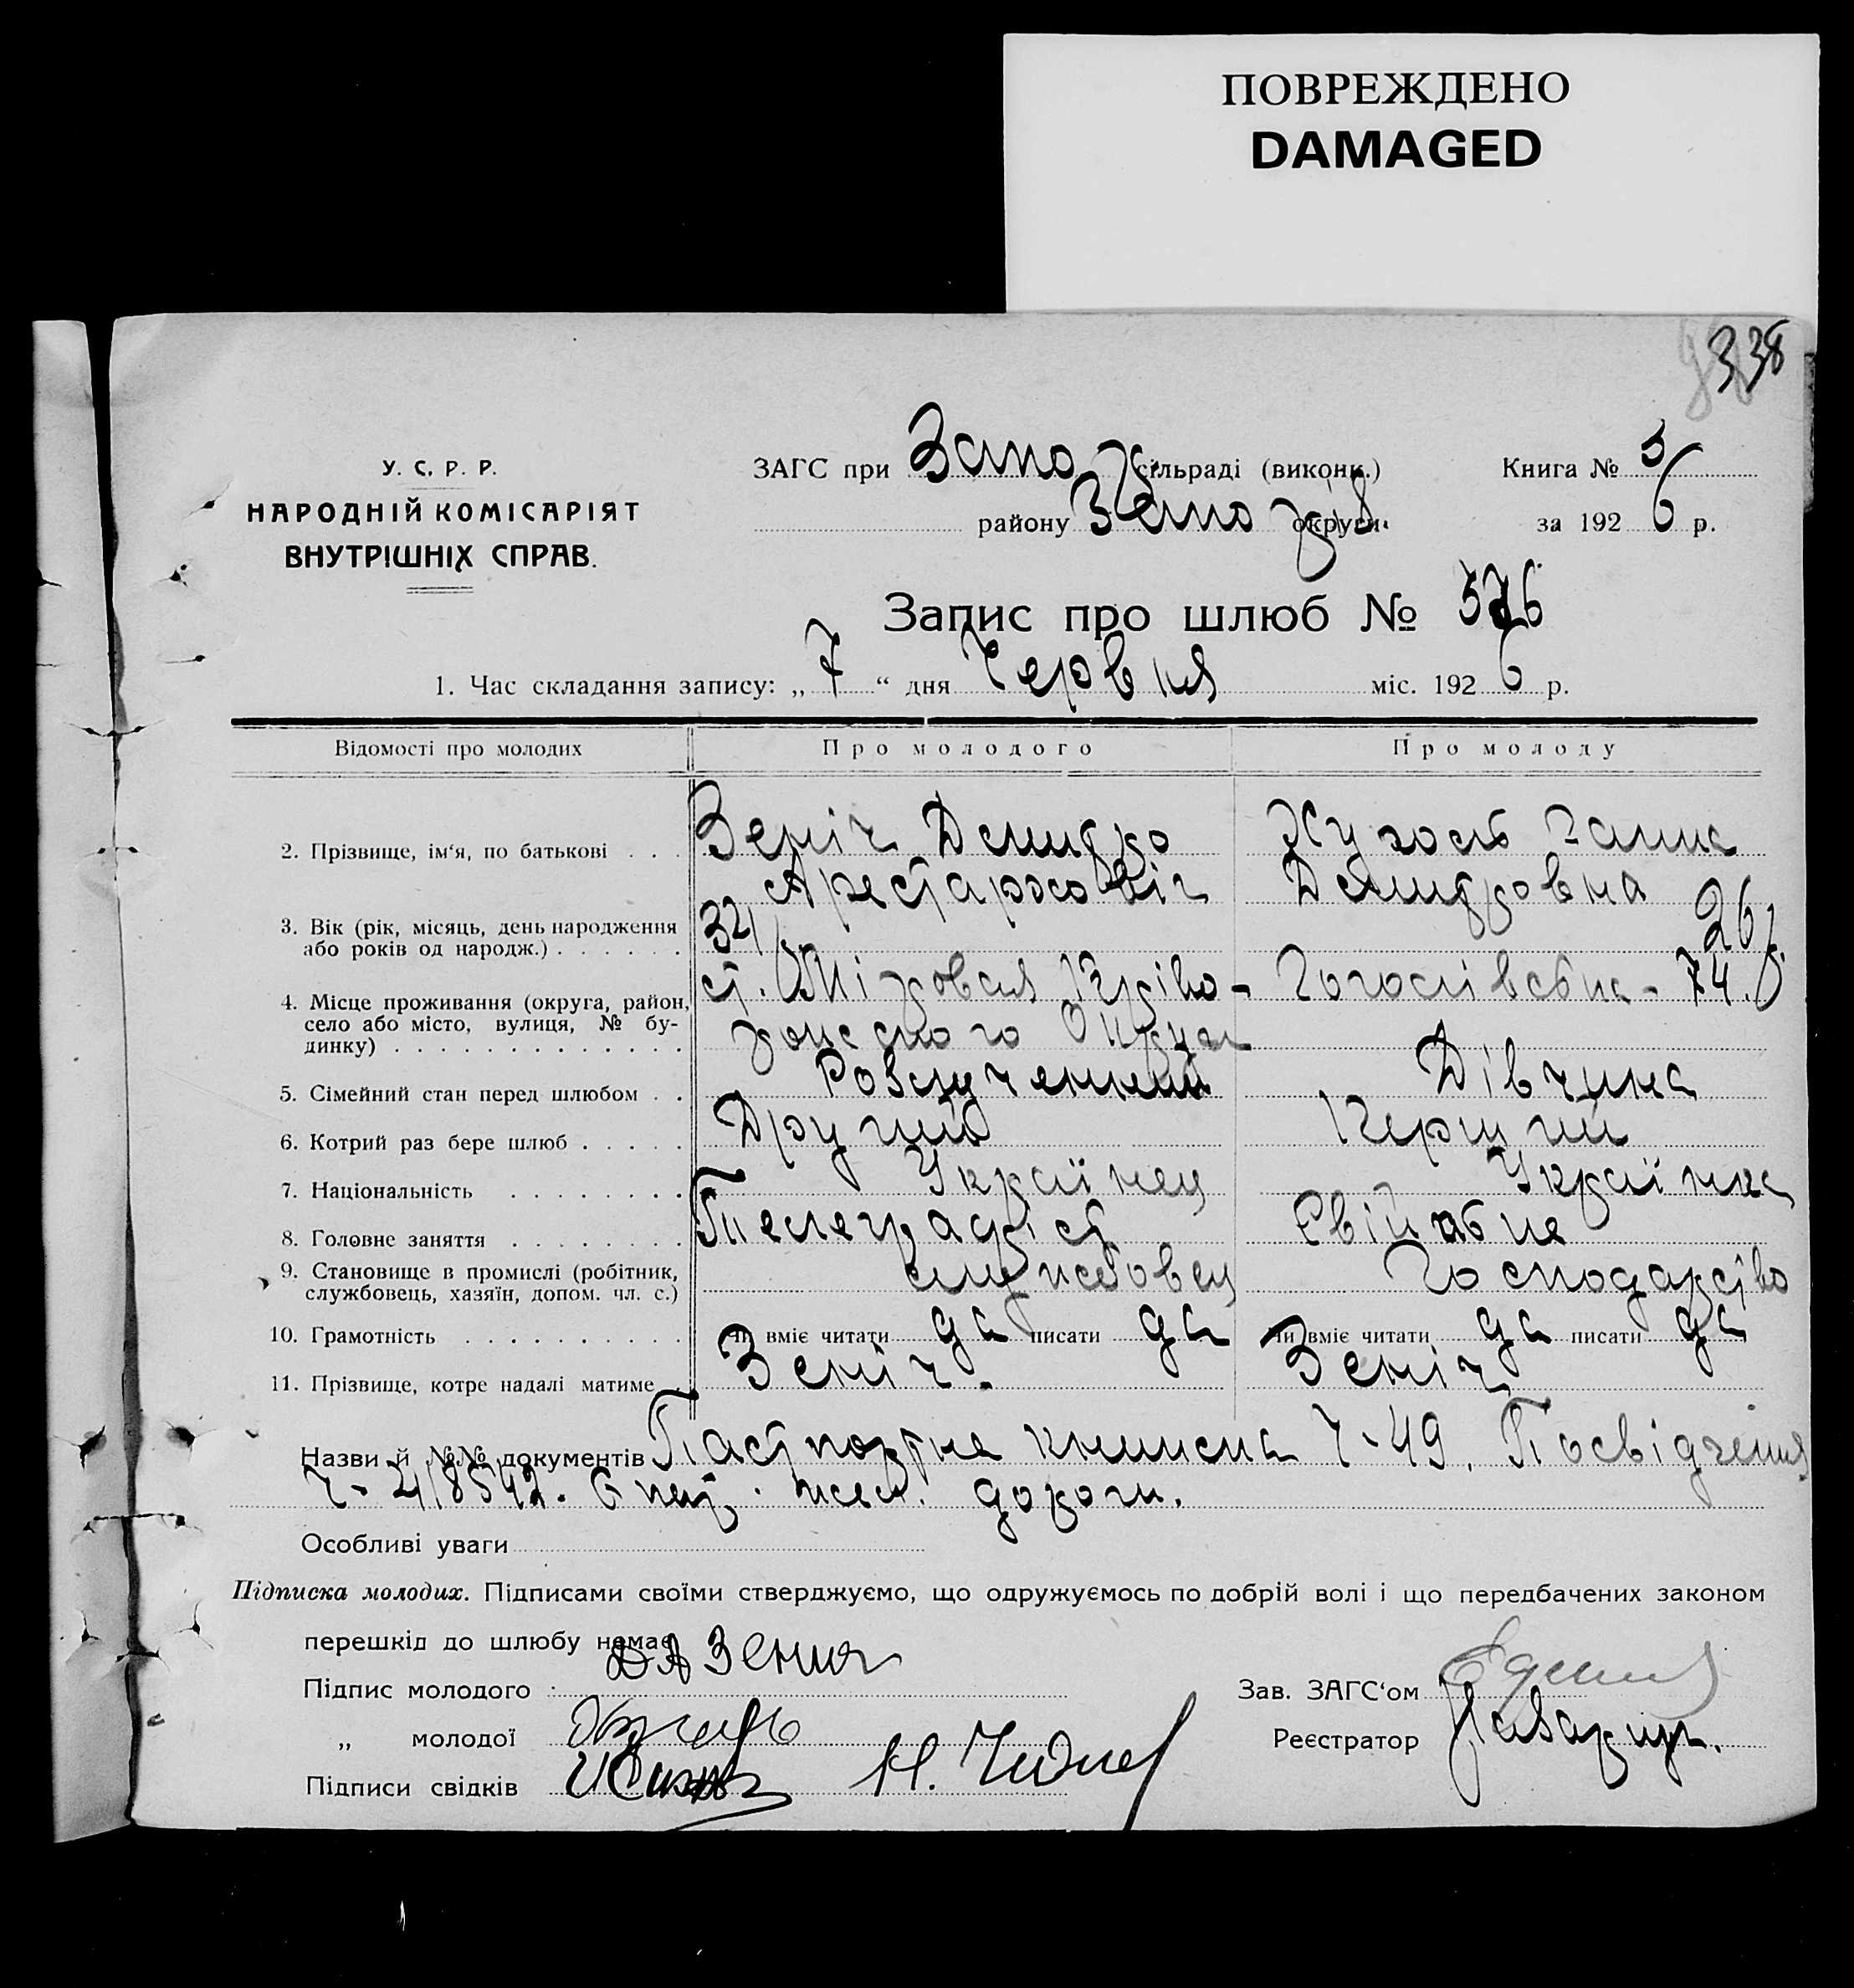 ПОВРЕЖДЕНО
DAMAGED
338
У. С. Р. Р.
НАРОДНІЙ КОМІСАРІЯТ
ВНУТРІШНІХ СПРАВ.
ЗАГС при Запо сільраді (виконк.) Книга № 5
району Запо округи за 1926 р.
Запис про шлюб № 576
1. Час складання запису: „7“ дня Червня міс. 1926 р.
Відомості про молодих Про молодого Про молоду
2. Прізвище, ім‘я, по батькові . . . Зеніч Дмитро Ганна
Арестархович Дмитровна
3. Вік (рік, місяць, день народження 26 р.
або років од народж.) . . . . . .
4. Місце проживання (округа, район, ст. Криво- 74.
село або місто, вулиця, № бу-
динку) . . . . . . . . . . . . . Округи
5. Сімейний стан перед шлюбом . . Розлученний Дівчина
6. Котрий раз бере шлюб . . . . . Другий Перший
7. Національність . . . . . . . . Українец Українка
8. Головне заняття . . . . . . . . Телеграфіст
9. Становище в промислі (робітник, службовец Господарство
службовець, хазяїн, допом. чл. с.)
10. Грамотність . . . . . . . . . . Чи вміє читати да писати да Чи вміє читати да писати да
11. Прізвище, котре надалі матиме Зеніч. Зеніч
Назви й №№ документів Паспортна книжка Ч-49, Посвідчення
Ч- 418542. жел. дороги.
Особливі уваги
Підписка молодих. Підписами своїми стверджуємо, що одружуємось по добрій волі і що передбачених законом
перешкід до шлюбу немає
Підпис молодого : ДА Зенич
Зав. ЗАГС‘ом
„ молодої
Реєстратор
Підписи свідків Н.